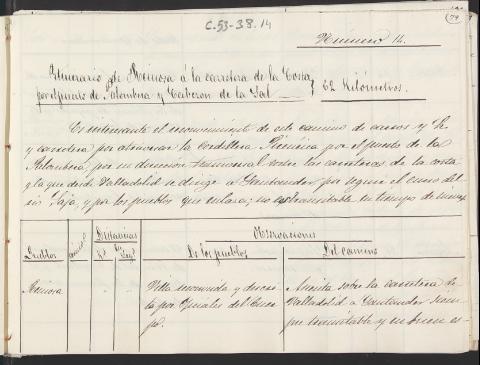 C.53-38.14
79
Número 14.
Itinerario de Reinosa á la carretera de la Costa
por el puerto de Palombera y Cabezon de la Sal
62 Kilómetros.
Es interesante el reconocimiento de este camino de carros
y carretera por atravesar la cordillera Pirenáica por el puerto de la
Palombera, por su direccion transversal sobre las carreteras de la costa
y la que desde Valladolid se dirige á Santander, por seguir el curso del
rio Saja, y por los pueblos que enlaza; no es transitable en tiempo de nieves
Observaciones
Distancias
Pueblos
De los pueblos
Del camino
Reinosa
Villa reconocida y descri-
ta por Oficiales del Cuer-
po.
Arriba sobre la carretera de
Valladolid á Santander siem-
pre transitable y en buen es-